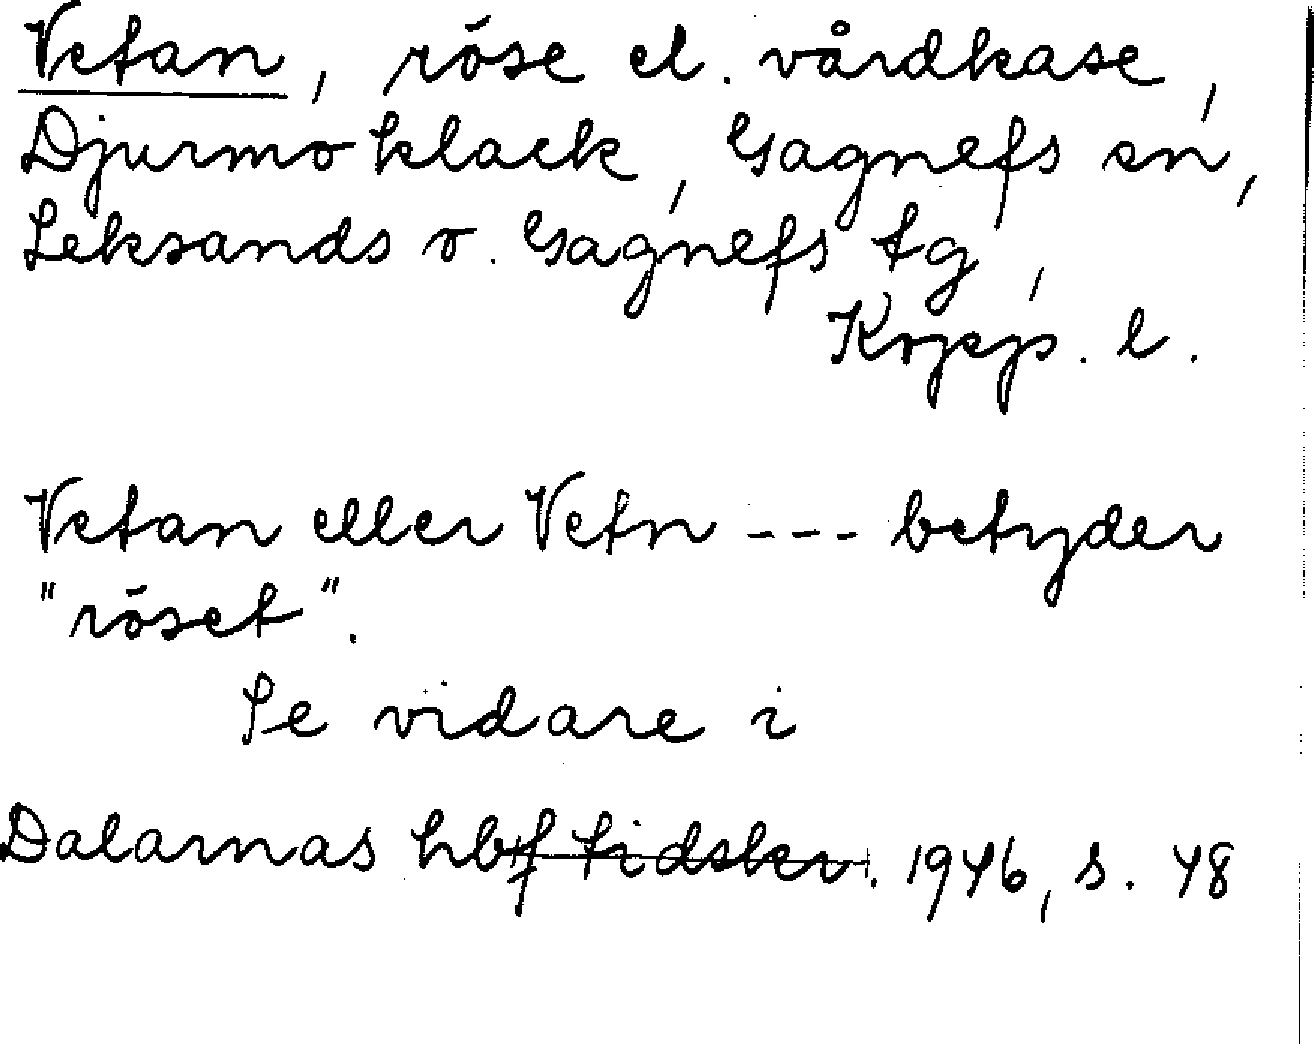 Vetan, röse el. vårdkase,
Djurmo klack, Gagnefs sn,
Leksands o. Gagnefs tg,
Kopp. l.
Vetan eller Vetn --- betyder
"röset".
Se vidare i
Dalarnas hbf tidskr. 1946, s. 48